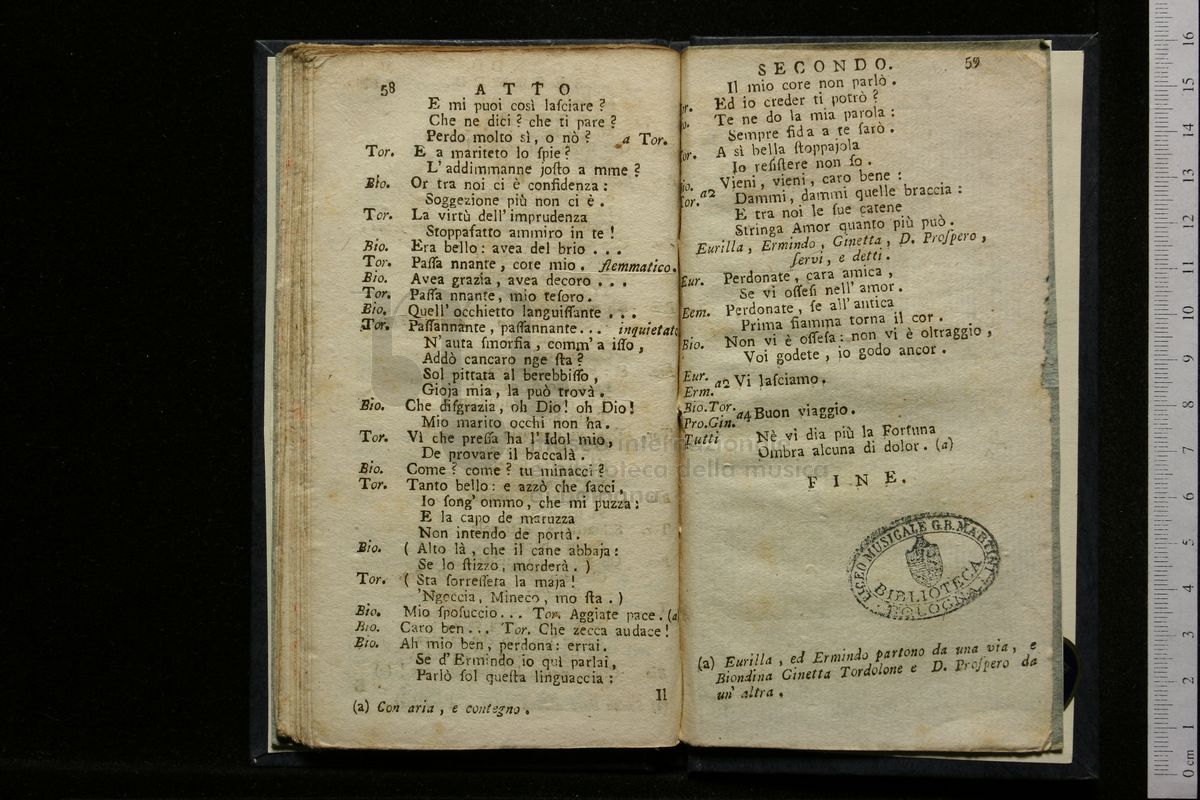 58
ATTO
E mi puoi così laſciare ?
Che ne dici ? che ti pare ?
Perdo molto sì, o nò ? a Tor.
Tor. E a mariteto lo ſpie ?
L' addimmanne joſto a mme ?
Bio. Or tra noi ci è confidenza :
Soggezione più non ci è .
Tor. La virtù dell' imprudenza
Stoppafatto ammiro in te !
Bio. Era bello : avea del brio . . .
Tor. Paſſa nnante, core mio . flemmatico.
Bio. Avea grazia, avea decoro . . .
Tor. Paſſa nnante, mio teſoro .
Bio. Quell' occhietto languiſſante . . .
Tor. Paſſannante, paſſannante . . . inquietato
N' auta ſmorfia , comm' a iſſo ,
Addò cancaro nge ſta ?
Sol pittata al berebbiſſo ,
Gioja mia , la può trovà .
Bio. Che diſgrazia, oh Dio ! oh Dio !
Mio marito occhi non ha .
Tor. Vì che preſſa ha l' Idol mio,
De provare il baccalà .
Bio. Come ? come ? tu minacci ?
Tor. Tanto bello : e azzò che ſacci,
Io ſong' ommo, che mi puzza :
E la capo de maruzza
Non intendo de portà .
Bio. ( Alto là , che il cane abbaja :
Se lo ſtizzo, morderà . )
Tor. ( Sta ſorreſſera la maja !
'Ngoccia, Mineco, mo ſta . )
Bio. Mio ſpoſuccio . . . Tor. Aggiate pace . (a)
Bio. Caro ben . . . Tor. Che zecca audace !
Bio. Ah mio ben, perdona : errai.
Se d'Ermindo io quì parlai,
Parlò ſol queſta linguaccia :
Il
(a) Con aria , e contegno .
SECONDO. 59
Il mio core non parlò .
or. Ed io creder ti potrò ?
o. Te ne do la mia parola :
Sempre fida a te ſarò .
or. A sì bella ſtoppajola
Io reſiſtere non ſo .
io. a2 Vieni, vieni, caro bene :
Tor. Dammi, dammi quelle braccia :
E tra noi le ſue catene
Stringa Amor quanto più può .
Eurilla , Ermindo , Ginetta , D. Proſpero ,
ſervi , e detti .
Eur. Perdonate, cara amica ,
Se vi offeſi nell' amor .
Eem. Perdonate, ſe all' antica
Prima fiamma torna il cor .
Bio. Non vi è offeſa : non vi è oltraggio ,
Voi godete, io godo ancor .
Eur. a2 Vi laſciamo .
Erm.
Bio. Tor. a4 Buon viaggio .
Pro. Gin.
Tutti Nè vi dia più la Fortuna
Ombra alcuna di dolor . (a)
FINE.
LICEO MUSICALE G.B. MARTINI
BIBLIOTECA
BOLOGNA
(a) Eurilla , ed Ermindo partono da una via , e
Biondina Ginetta Tordolone e D. Proſpero da
un' altra .